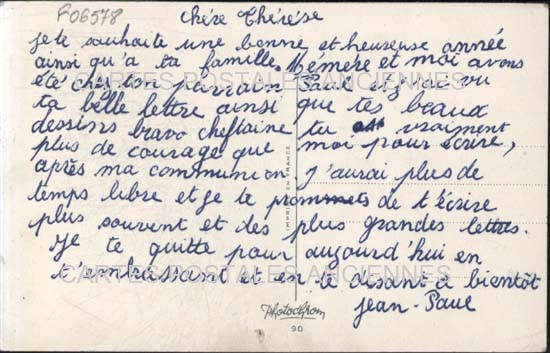 P06578
Chère Thérèse
je te souhaite une bonne et heureuse année
ainsi qu'a ta famille. Mémère et moi avons
été chez ton parrain Paul et j'ai vu
ta belle lettre ainsi que tes beaux
dessins bravo cheftaine tu as vraiment
plus de courage que moi pour écrire,
après ma communion j'aurai plus de
temps libre et je te promets de t'écrire
plus souvent et des plus grandes lettres.
Je te quitte pour aujourd'hui en
t'embrassant et en te disant a bientôt
Jean-Paul
CARTES POSTALES ANCIENNES
CARTES POSTALES ANCIENNES
IMPRIMÉ EN FRANCE
Photochrom
90